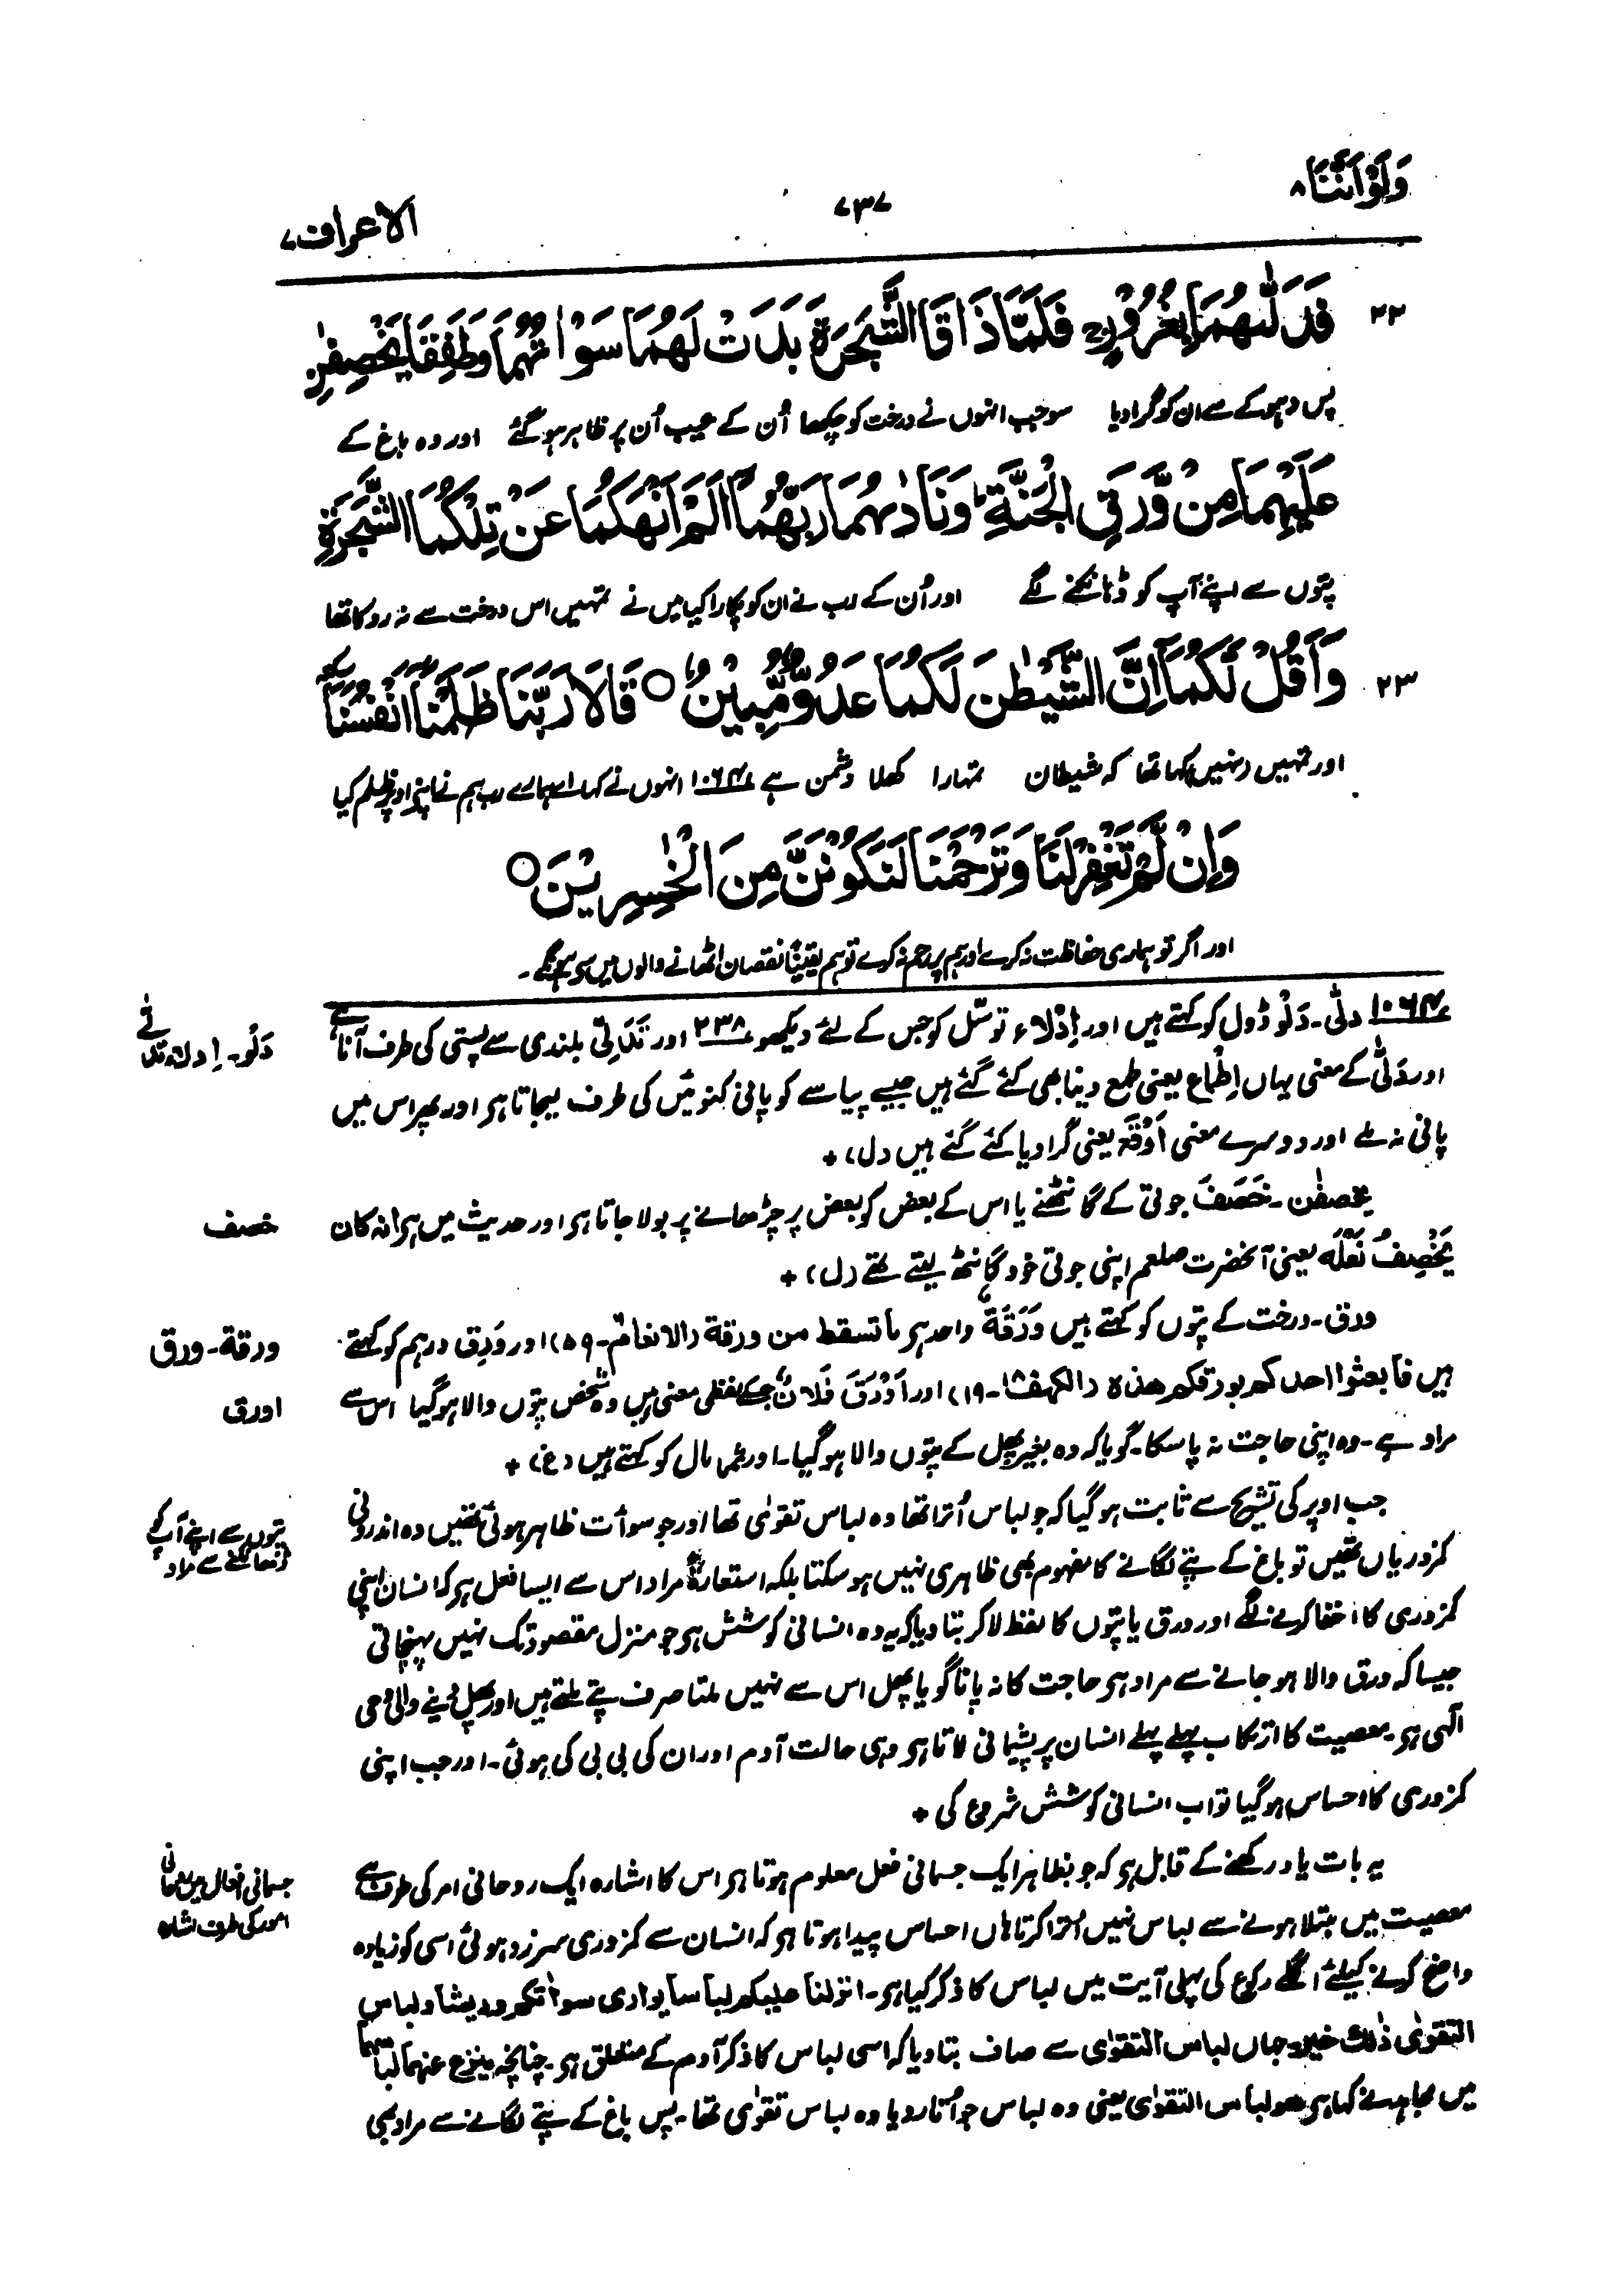 وَلَوْاَنَّنَا ۸
۷۳۷
الاعراف ۷
۲۲
فَدَلّٰىهُمَا بِغُرُوْرٍ ۚ فَلَمَّا ذَاقَا الشَّجَرَةَ بَدَتْ لَهُمَا سَوْاٰتُهُمَا وَطَفِقَا يَخْصِفٰنِ
پس دہوکے سے ان کو گرا دیا سو جب انہوں نے درخت کو چکھا اُن کے عیب اُن پر ظاہر ہو گئے اور وہ باغ کے
عَلَيْهِمَا مِنْ وَّرَقِ الْجَنَّةِ ؕ وَنَادٰىهُمَا رَبُّهُمَاۤ اَلَمْ اَنْهَكُمَا عَنْ تِلْكُمَا الشَّجَرَةِ
پتوں سے اپنے آپ کو ڈھانکنے لگے اور اُن کے رب نے ان کو پکارا کیا میں نے تمہیں اس درخت سے نہ روکا تھا
۲۳
وَاَقُلْ لَّكُمَاۤ اِنَّ الشَّيْطٰنَ لَكُمَا عَدُوٌّ مُّبِيْنٌ ○ قَالَا رَبَّنَا ظَلَمْنَاۤ اَنْفُسَنَا
اور تمہیں (نہیں) کہا تھا کہ شیطان تمہارا کھلا دشمن ہے ۱۰۶۴ انہوں نے کہا اے ہمارے رب ہم نے اپنے اوپر ظلم کیا
وَاِنْ لَّمْ تَغْفِرْ لَنَا وَتَرْحَمْنَا لَنَكُوْنَنَّ مِنَ الْخٰسِرِيْنَ ○
اور اگر تو ہماری حفاظت نہ کرے اور ہم پر رحم نہ کرے تو ہم یقیناً نقصان اٹھانے والوں میں سے ہونگے۔
۱۰۶۴ دلّٰی۔ دَلْو ڈول کو کہتے ہیں اور اِدْلاء توسّل کو جس کے لئے دیکھو ۲۳۸ اور تَدَلِّی بلندی سے پستی کی طرف آنا ہے
دَلْو۔ اِدلاء تدلی
اور دَلّٰی کے معنی یہاں اِطماع یعنی طمع دینا بھی کئے گئے ہیں جیسے پیاسے کو پانی کنوئیں کی طرف لیجاتا ہو اور پھر اس میں
پانی نہ ملے اور دوسرے معنی اَوْقَعَ یعنی گرا دیا کئے گئے ہیں (ل) +
یخصفٰن۔ خَصَفَ جوتی کے گانٹھنے یا اس کے بعض کو بعض پر چڑھانے پر بولا جاتا ہو اور حدیث میں ہو انہ کان
خصف
یَخْصِفُ نَعْلَہ یعنی آنحضرت صلعم اپنی جوتی خود گانٹھ لیتے تھے (ل) +
ورق۔ درخت کے پتوں کو کہتے ہیں وَرَقَةٌ واحد ہو ما تسقط من ورقة (الانعام ۶۔۵۹) اور وَرِق درہم کو کہتے
ورقة۔ ورق
ہیں فابعثوا احدکم بورقکم ھذہ (الکھف ۱۸۔۱۹) اور اَوْرَقَ فلانٌ جسکے لفظی معنی ہیں وہ شخص پتوں والا ہو گیا اس سے
اورق
مراد ہے۔ وہ اپنی حاجت نہ پا سکا۔ گویا کہ وہ بغیر پھل کے پتوں والا ہو گیا۔ اور ثمر مال کو کہتے ہیں (غ) +
جب اوپر کی تشریح سے ثابت ہو گیا کہ جو لباس اُترا تھا وہ لباس تقوٰی تھا اور جو سوأت ظاہر ہوئی تھیں وہ اندرونی
پتوں سے اپنے آپ کو
ڈھانکنے سے مراد
کمزوریاں تھیں تو باغ کے پتے لگانے کا مفہوم بھی ظاہری نہیں ہو سکتا بلکہ استعارةً مراد اس سے ایسا فعل ہو کہ انسان اپنی
کمزوری کا اخفا کرنے لگے اور ورق یا پتوں کا لفظ لا کر بتا دیا کہ یہ وہ انسانی کوشش ہو جو منزل مقصود تک نہیں پہنچاتی
جیسا کہ ورق والا ہو جانے سے مراد ہو حاجت کا نہ پانا گویا پھل اس سے نہیں ملتا صرف پتے ملتے ہیں اور پھل دینے والی وحی
الٰہی ہو۔ معصیت کا ارتکاب پہلے پہلے انسان پر پشیمانی لاتا ہو وہی حالت آدم اور ان کی بی بی کی ہوئی۔ اور جب اپنی
کمزوری کا احساس ہو گیا تو اب انسانی کوشش شروع کی +
یہ بات یاد رکھنے کے قابل ہو کہ جو بظاہر ایک جسمانی فعل معلوم ہوتا ہو اس کا اشارہ ایک روحانی امر کی طرف ہے
جسمانی افعال میں روحانی
امور کی طرف اشارہ
معصیت میں مبتلا ہونے سے لباس نہیں اُترا کرتا ہاں احساس پیدا ہوتا ہو کہ انسان سے کمزوری سرزد ہوئی اسی کو زیادہ
واضح کرنے کیلئے اگلے رکوع کی پہلی آیت میں لباس کا ذکر کیا ہو۔ انزلنا علیکم لباسا یواری سواٰتکم وریشا ولباس
التقوٰی ذٰلک خیر جہاں لباس التقوٰی سے صاف بتا دیا کہ اسی لباس کا ذکر آدم کے متعلق ہو۔ چنانچہ ینزع عنھما لباسھما
میں مجاہد نے کہا ہو ھو لباس التقوٰی یعنی وہ لباس جو اُتار دیا وہ لباس تقوٰی تھا۔ پس باغ کے پتے لگانے سے مراد بھی